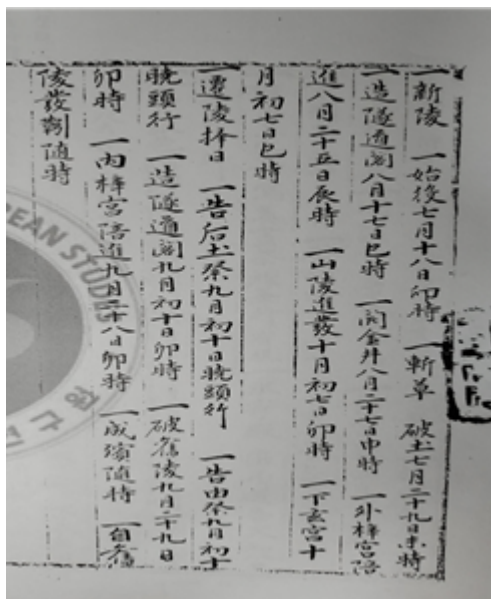 一新陵 一始役七月十八日卯時 一斬草 破土七月二十九日未時
一造隧道閣八月十七日巳時 一開金井八月二十七日申時 一外梓宮陪
進八月二十五日辰時 一山陵進發十月初七日卯時 一下玄宮十
月初七日巳時
一遷陵擇日 一告后土祭九月初十日曉頭行 一告由祭九月初十
曉頭行 一造隧道閣九月初十日卯時 一破舊陵九月二十九日
卯時 一內梓宮陪進九月二十八日卯時 一成殯隨時 一自舊
陵發靷隨時
EAN STUDIES